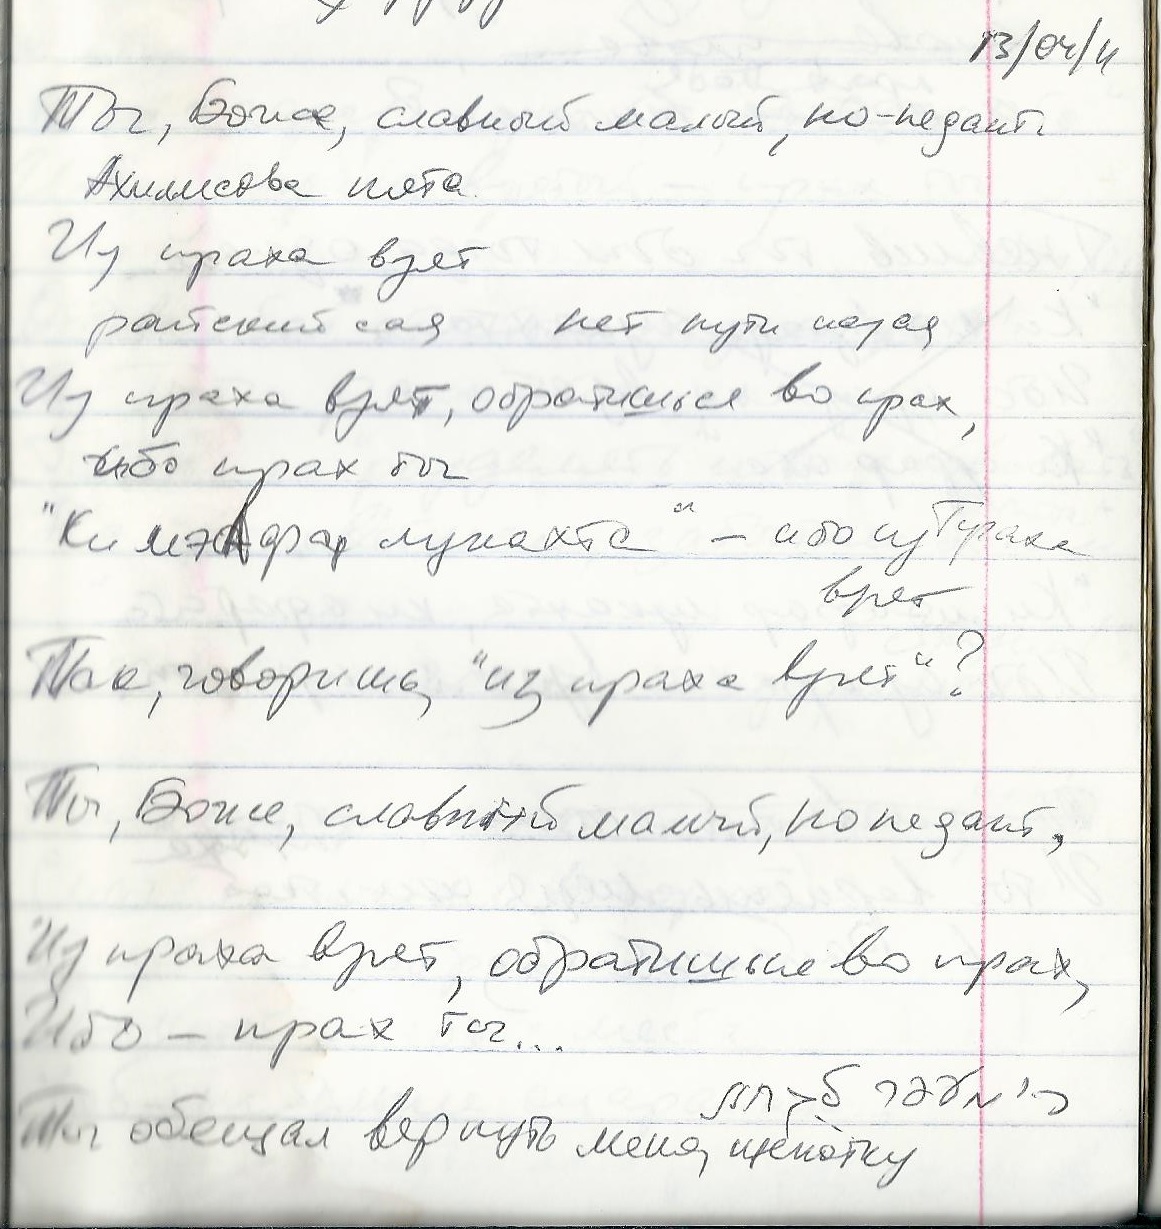 13/04/11
Ты, Боже, славный малый, но-педант.
Ахиллесова пята.
Из праха взят
райский сад нет пути назад
Из праха взят, обратишься во прах,
ибо прах ты
"Ки мэафар лукахта" – ибо из праха
взят
Так, говоришь, "из праха взят"?
Ты, Боже, славный малый, но педант,
"Из праха взят, обратишься во прах,
Ибо – прах ты...
Ты обещал вернуть меня, щепотку